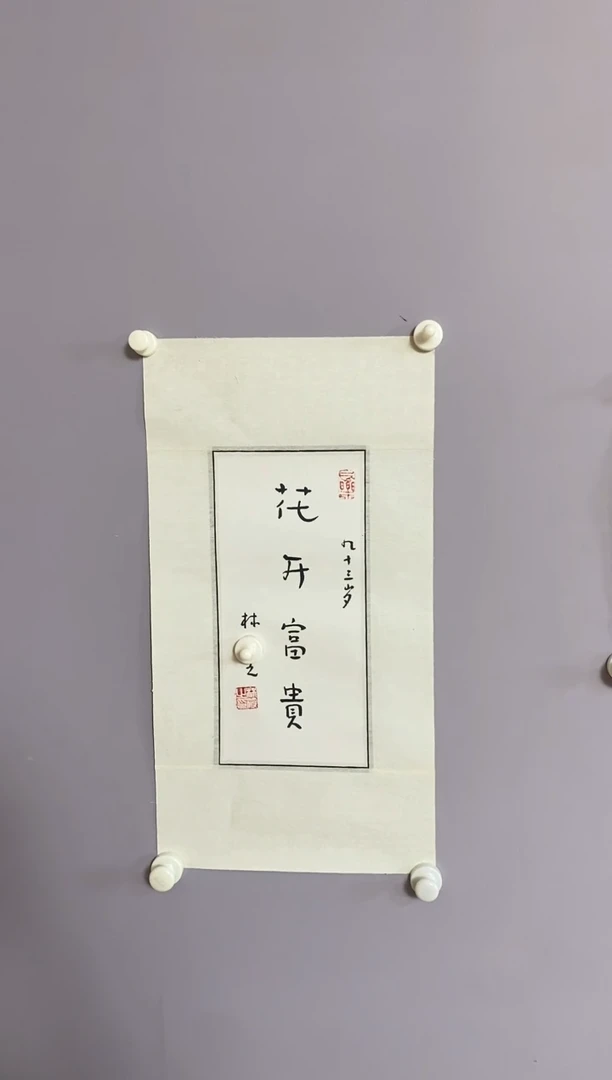 九十三岁
花开富貴
林
之